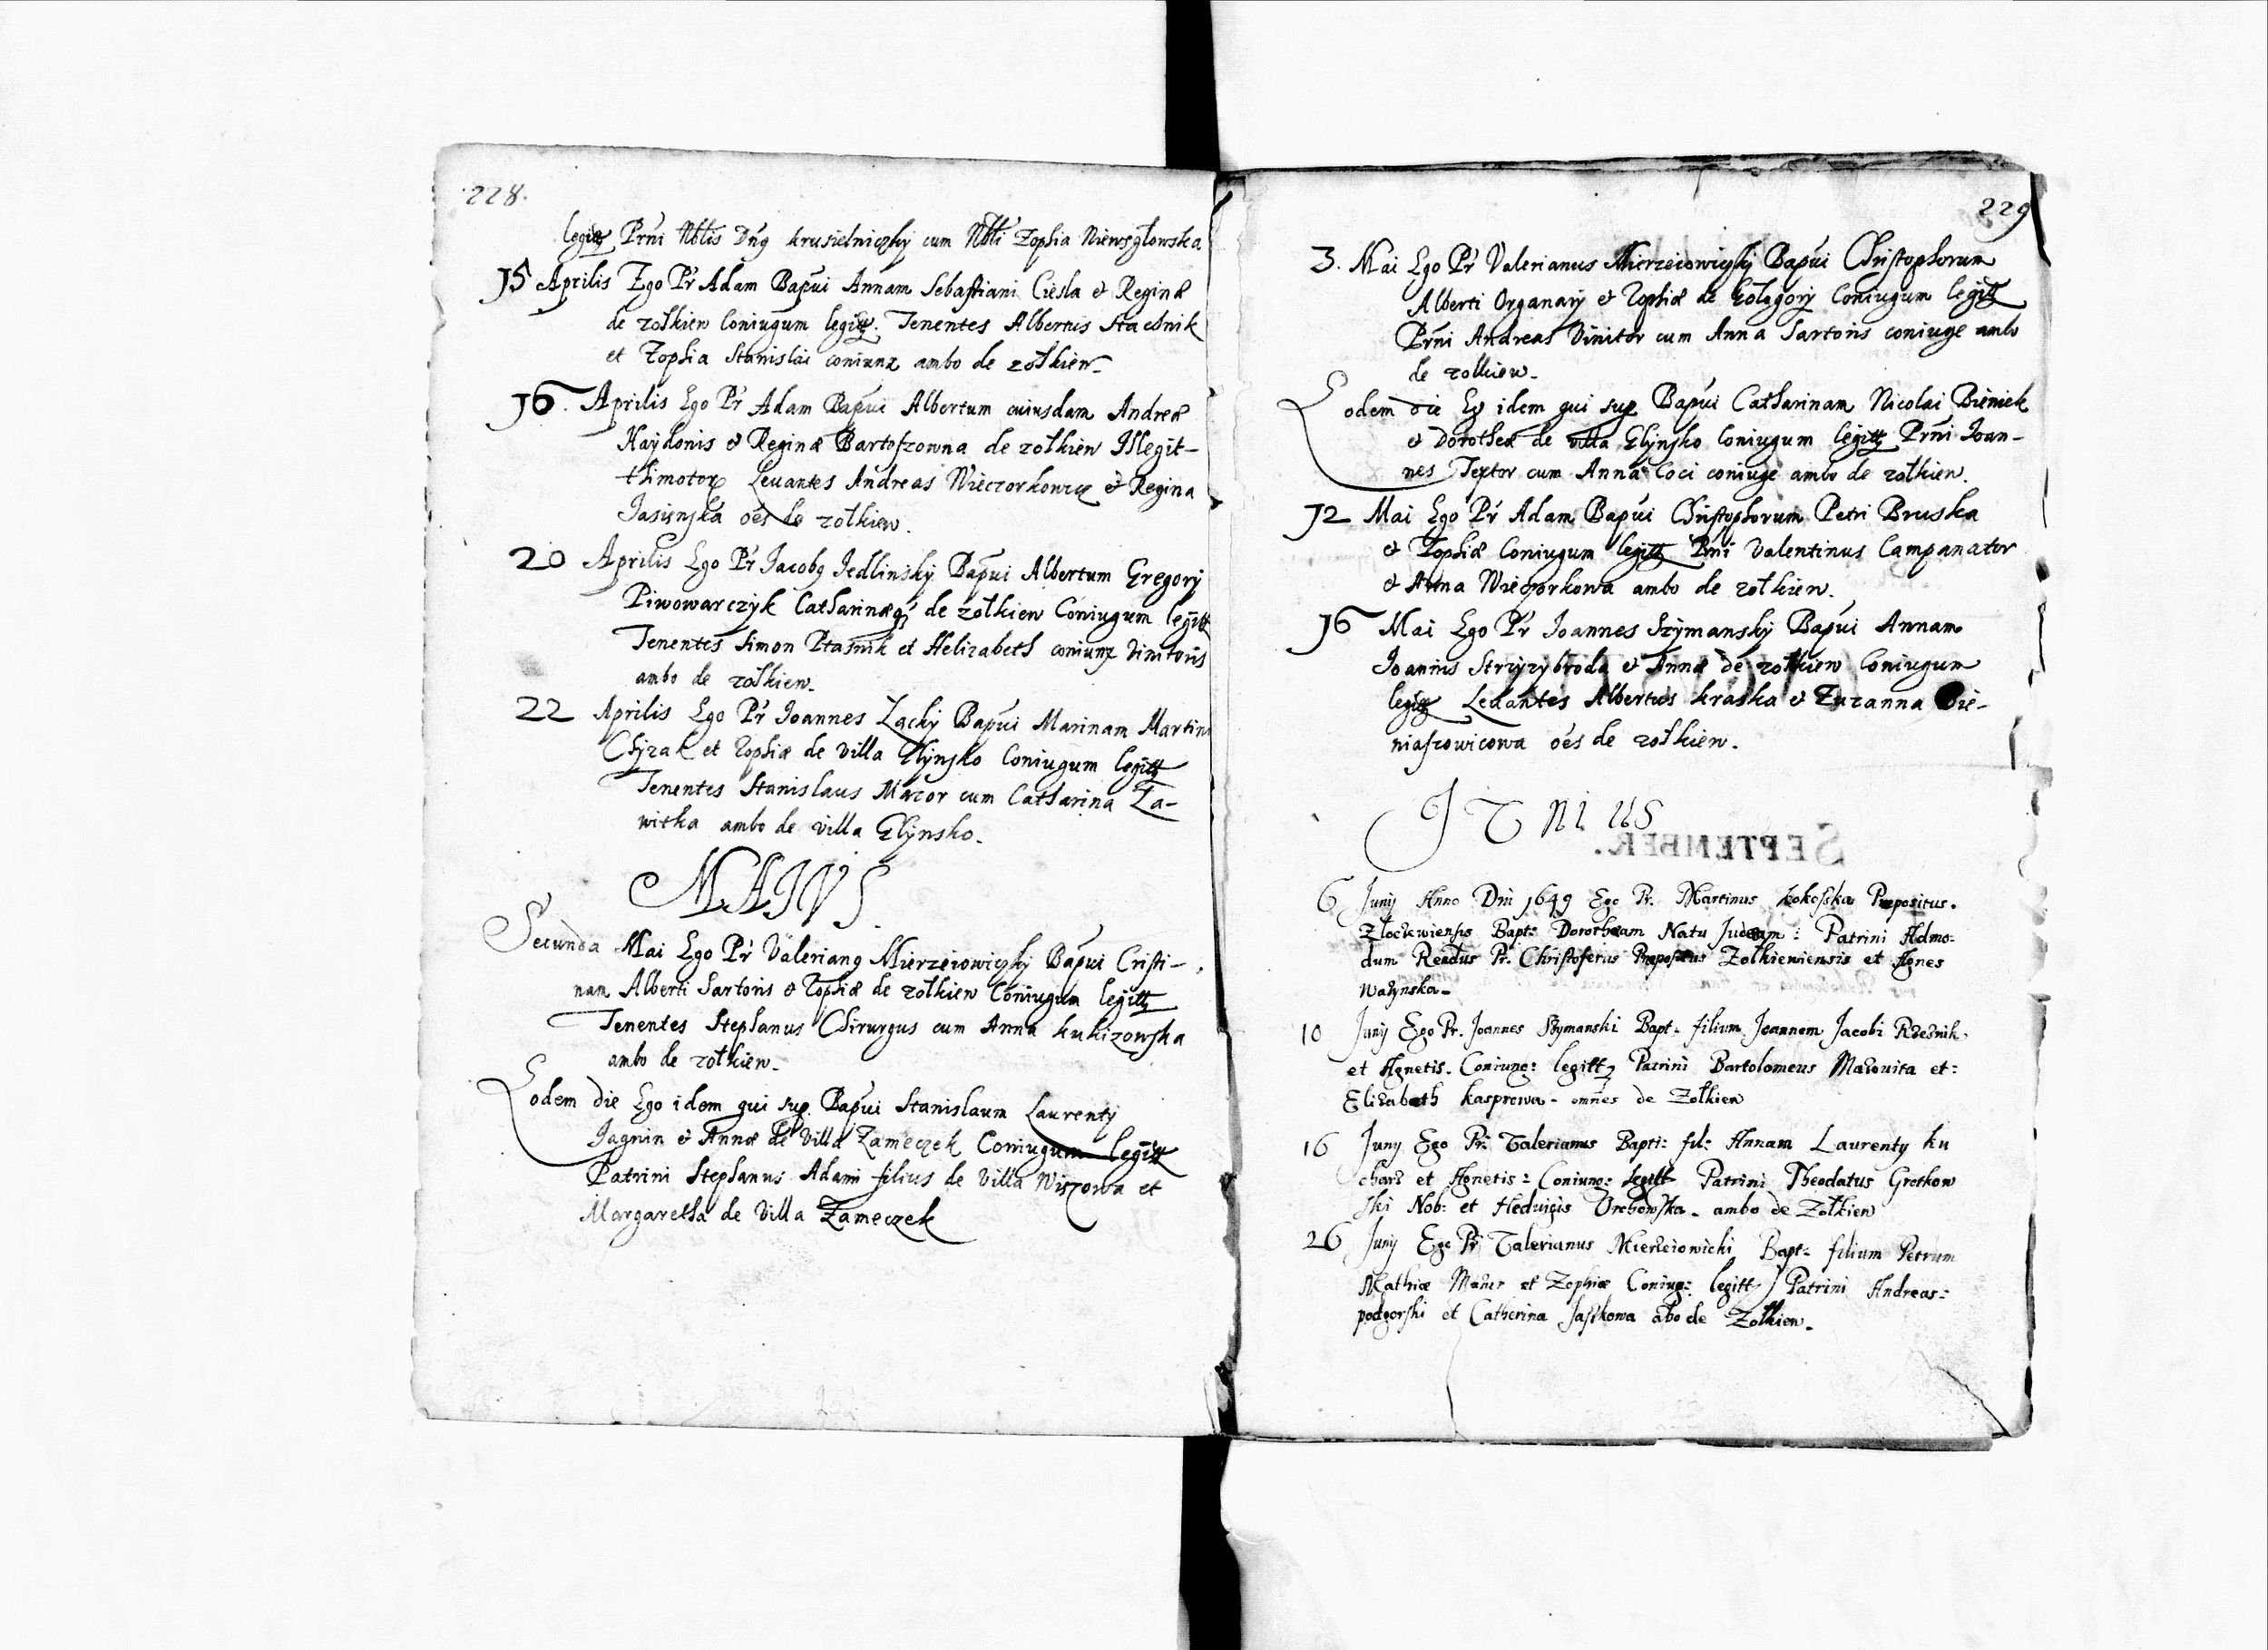 228.
legitt Prni Nblis Dng Krusielniczky cum Nbli Zophia Niewsgłowska
15 Aprilis Ego Pr Adam Bapui Annam Sebastiani Ciesla et Reginæ
de zołkiew Coniugum legitt. Tenentes Albertus Stachnik
et Zophia Stanislai coniunx ambo de zołkiew
16. Aprilis Ego Pr Adam Bapui Albertum cuiusdam Andreæ
Haydonis et Reginæ Bartoszowna de zołkiew Illegit-
thimotor Leuantes Andreas Wieczorkowicz et Regina
Jasienska oēs de zołkiew.
20 Aprilis Ego Pr Jacobg Jedlinsky Bapui Albertum Gregory
Piwowarczyk Catharinæq de zołkiew Coniugum legitt
Tenentes Simon Ptasnik et Helizabeth coniunx Vinitoris
ambo de zołkiew.
22 Aprilis Ego Pr Joannes Zacky Bapui Marinam Martini
Chyzak et Zophiæ de Villa Glynsko Coniugum legitt
Tenentes Stanislaus Mazor cum Catharina Za-
witka ambo de villa Glynsko.
MAIVS
Secunda Mai Ego Pr Valeriang Mierzeiowiczky Bapui Cristi-
nam Alberti Sartoris et Zophiæ de zołkiew Coniugum legitt
Tenentes Stephanus Chirurgus cum Anna Kukizowska
ambo de zołkiew
Eodem die Ego idem qui sup. Bapui Stanislaum Laurenty
Jagnin et Annæ de Villa Zameczek Coniugum legitt
Patrini Stephanus Adami filius de Villa Wiszowa et
Margaretha de Villa Zameczek
229
3. Mai Ego Pr Valerianus Mierzeiowiczky Bapui Christophorum
Alberti Organary et Zophiæ de Gołogory Coniugum legitt
Prni Andreas Vinitor cum Anna Sartoris coniuge ambo
de zolkiew
Eodem die Eg idem qui sup Bapui Catharinam Nicolai Bieniek
et Dorotheæ de villa Glynsko Coniugum legitt Prni Joan-
nes Textor cum Anna Coci coniuge ambo de zołkiew.
12 Mai Ego Pr Adam Bapui Christophorum Petri Bruska
et Zophiæ Coniugum legitt Prni Valentinus Campanator
et Anna Wieczorkowa ambo de zołkiew.
16 Mai Ego Pr Joannes Szymansky Bapui Annam
Joannis Strzyzybroda et Annæ de zołkiew Coniugum
legitt Leuantes Albertus Kraska et Zuzanna Bie-
niaszowicowa oēs de zołkiew.
JUNIUS
SEPTEMBER.
6 Juny Anno Dni 1649 Ego Pr. Martinus Kokoszka Præpositus.
Złoczowiensis Bapt: Dorotheam Natu Judæam: Patrini Admo:
dum Rendus Pr. Christoferus Præpositus Zołkiewiensis et Agnes
Wazynska
10 Juny Ego Pr. Joannes Szymanski Bapt: filium Joannem Jacobi Rzeznik
et Agnetis. Coniung: legitt Patrini Bartolomeus Mazouita et:
Elizabeth Kasprowa - omnes de Zołkiew
16 Juny Ego Pr: Valerianus Bapti: fil: Annam Laurenty Ku
charz et Agnetis: Coniung: legitt Patrini Theodatus Grotkow
ski Nob: et Hedvigis Orchowska. ambo de Zołkiew
26 Juny Ego Pr Valerianus Mierzeiowicki Bapt: filium Petrum
Mathiæ Mazur et Zophiæ Coniug: legitt Patrini Andreas:
podgorski et Catherina Jaszkowa abo de Zołkiew.